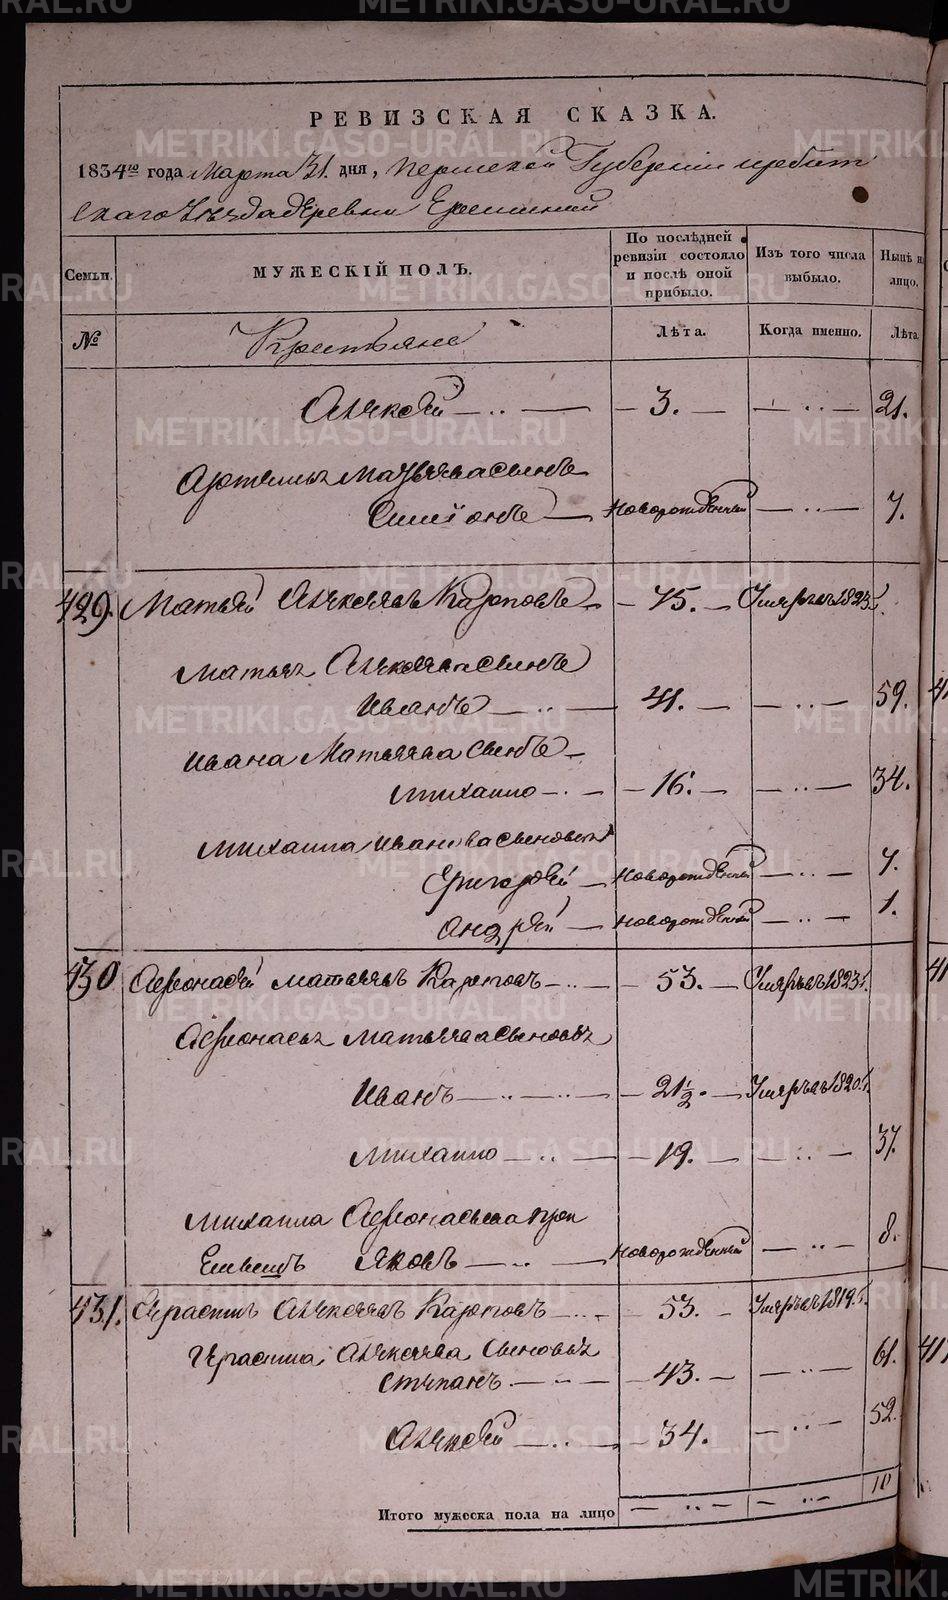 РЕВИЗСКАЯ СКАЗКА.
1834го года Марта 31. дня, Пермской Губернии ирбит
скаго Уѣзда деревни
Семьи. МУЖЕСКІЙ ПОЛЪ. По послѣдней ревизіи состояло и послѣ оной прибыло. Изъ того числа выбыло. Нынѣ на лицо.
№ Крестьяне Лѣта. Когда именно. Лѣта.
Алѣксѣй 3. 21.
Артемья сынъ
Симіонъ Новорожденный 7.
429. Матвѣй Алѣксѣевъ Карповъ 75. Умеръ въ 1823.
Матвѣя Алѣксѣева сынъ
Иванъ 41. 59.
Ивана Матвѣева сынъ
Михаило 16. 34.
Михаила Иванова сыновья
Григорей Новорожденный 7.
Андрѣй Новорожденный 1.
430 Афонасей Матвѣевъ Карповъ 53. Умеръ въ 1823.
Афонасья Матвѣева сыновья
Иванъ 21 1/2. Умеръ въ 1820.
Михаило 19. 37.
Михаила Афонасьева прі
емышъ Яковъ Новорожденный 8.
431. Алѣксѣевъ Карповъ 53. Умеръ въ 1819.
Алѣксѣева Сыновья
Стѣпанъ 43. 61.
Алѣксѣй 34. 52.
Итого мужеска пола на лицо 10
METRIKI.GASO-URAL.RU